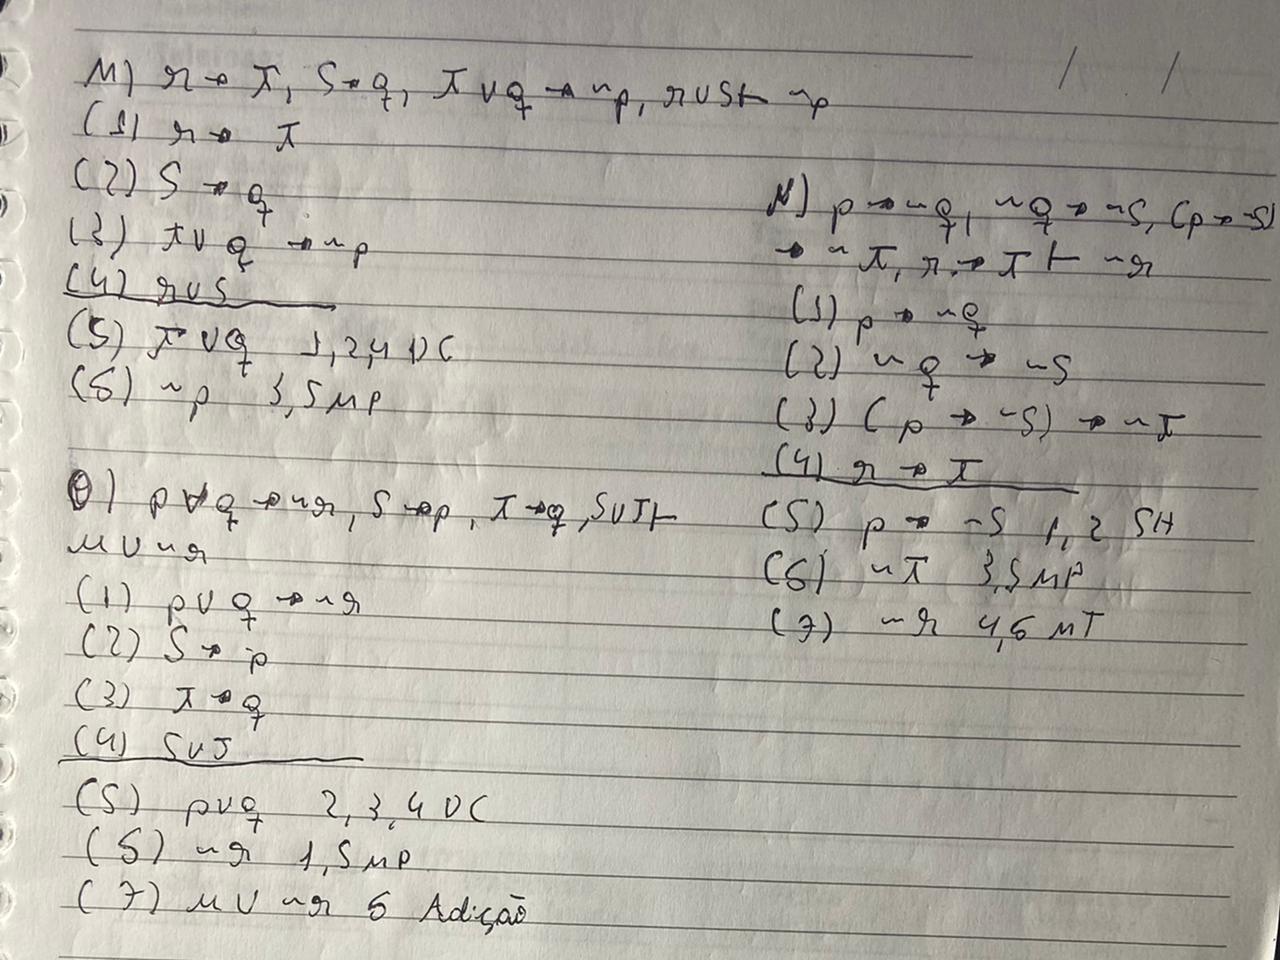 M) r → t, s → q, t ∨ q → ~p, r ∨ s ⊢ ~p
(1) r → t
(2) s → q
(3) t ∨ q → ~p
(4) r ∨ s
(5) t ∨ q 1,2,4 DC
(6) ~p 3,5 MP
O) p ∨ q → ~r, s → p, t → q, s ∨ t ⊢
u ∨ ~r
(1) p ∨ q → ~r
(2) s → p
(3) t → q
(4) s ∨ t
(5) p ∨ q 2,3,4 DC
(6) ~r 1,5 MP
(7) u ∨ ~r 6 Adição
N) p → ~q, ~q → ~s, (p → ~s)
→ ~t, r → t ⊢ ~r
(1) p → ~q
(2) ~q → ~s
(3) (p → ~s) → ~t
(4) r → t
(5) p → ~s 1,2 SH
(6) ~t 3,5 MP
(7) ~r 4,6 MT